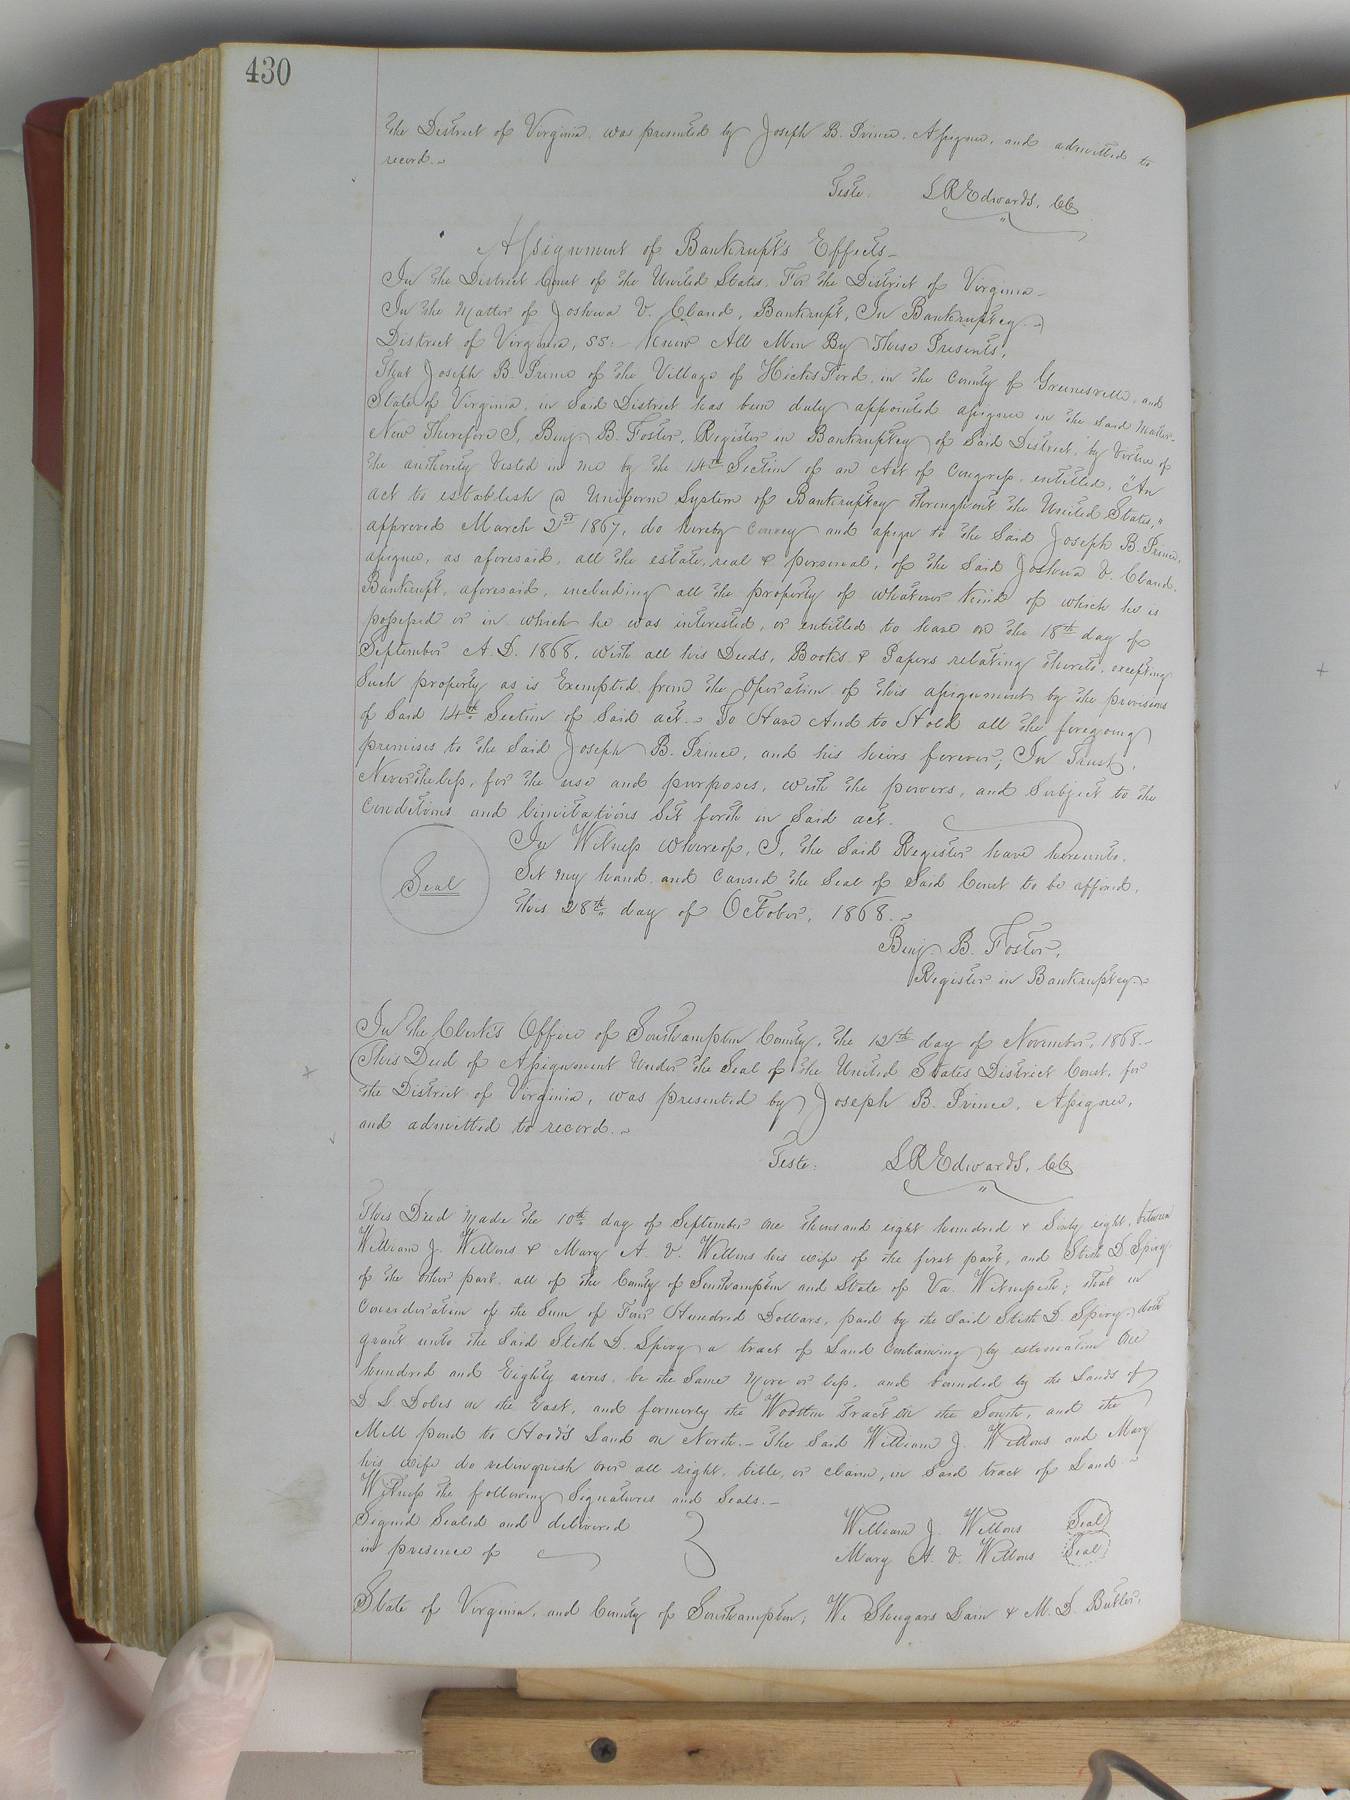 430
the District of Virginia, was presented by Joseph B. Prince, Assignee, and admitted to
record.
Teste. L R Edwards, CC
Assignment of Bankrupts Effects
In the District Court of the United States, For the District of Virginia
In the Matter of Joshua V. Cland, Bankrupt, In Bankruptcy
District of Virginia, SS: Know All Men By These Presents,
That Joseph B. Prince of the Village of Hicks Ford, in the County of Greenesville, and
State of Virginia, in Said District has been duly appointed assignee in the said Matter
Now Therefore I, Benj B. Foster, Register in Bankruptcy of Said District, by Virtue of
the authority Vested in me by the 14th Section of an Act of Congress, entitled, "An
act to establish a Uniform System of Bankruptcy throughout the United States,"
approved March 2nd 1867, do hereby Convey and assign to the Said Joseph B. Prince,
assignee, as aforesaid, all the estate, real & personal, of the Said Joshua V. Cland,
Bankrupt, aforesaid, including all the property of whatever Kind of which he is
possessed or in which he was interested, or entitled to have on the 18th day of
September A.D. 1868, with all his Deeds, Books & Papers relating thereto, excepting
Such property as is Exempted from the Operation of this assignment by the provisions
of Said 14th Section of Said act. To Have And to Hold all the foregoing
premises to the Said Joseph B. Prince, and his heirs forever, In Trust,
Nevertheless, for the use and purposes, with the powers, and Subject to the
Conditions and limitations Set forth in Said act.
In Witness whereof, I, the Said Register have hereunto
Seal Set my hand and Caused the Seal of Said Court to be affixed,
this 28th day of October, 1868.
Benj. B. Foster,
Register in Bankruptcy
In the Clerk's Office of Southampton County, the 12th day of November, 1868.
This Deed of Assignment Under the Seal of the United States District Court, for
the District of Virginia, was presented by Joseph B. Prince, Assignee,
and admitted to record.
Teste: L R Edwards, CC
This Deed Made the 10th day of September One thousand eight hundred & Sixty eight, between
William J. Wellons & Mary A. V. Wellons his wife of the first part, and Stith D Spivy
of the other part, all of the County of Southampton and State of Va. Witnesseth; that in
Consideration of the Sum of Four Hundred Dollars, paid by the Said Stith D. Spivy, doth
grant unto the Said Stith D. Spivy a tract of Land Containing by estimation One
hundred and Eighty acres, be the Same More or less, and bounded by the Lands of
D L Dobes on the East, and formerly the Wootten Tract on the South, and the
Mill pond to Hood's Land on North. The Said William J. Wellons and Mary
his wife do relinquish over all right, title, or claim, in Said tract of Land.
Witness the following Signatures and Seals.
Signed Sealed and delivered William J. Wellons Seal
in presence of Mary A. V. Wellons Seal
State of Virginia, and County of Southampton, We Shugars Lain & M. D. Butler,